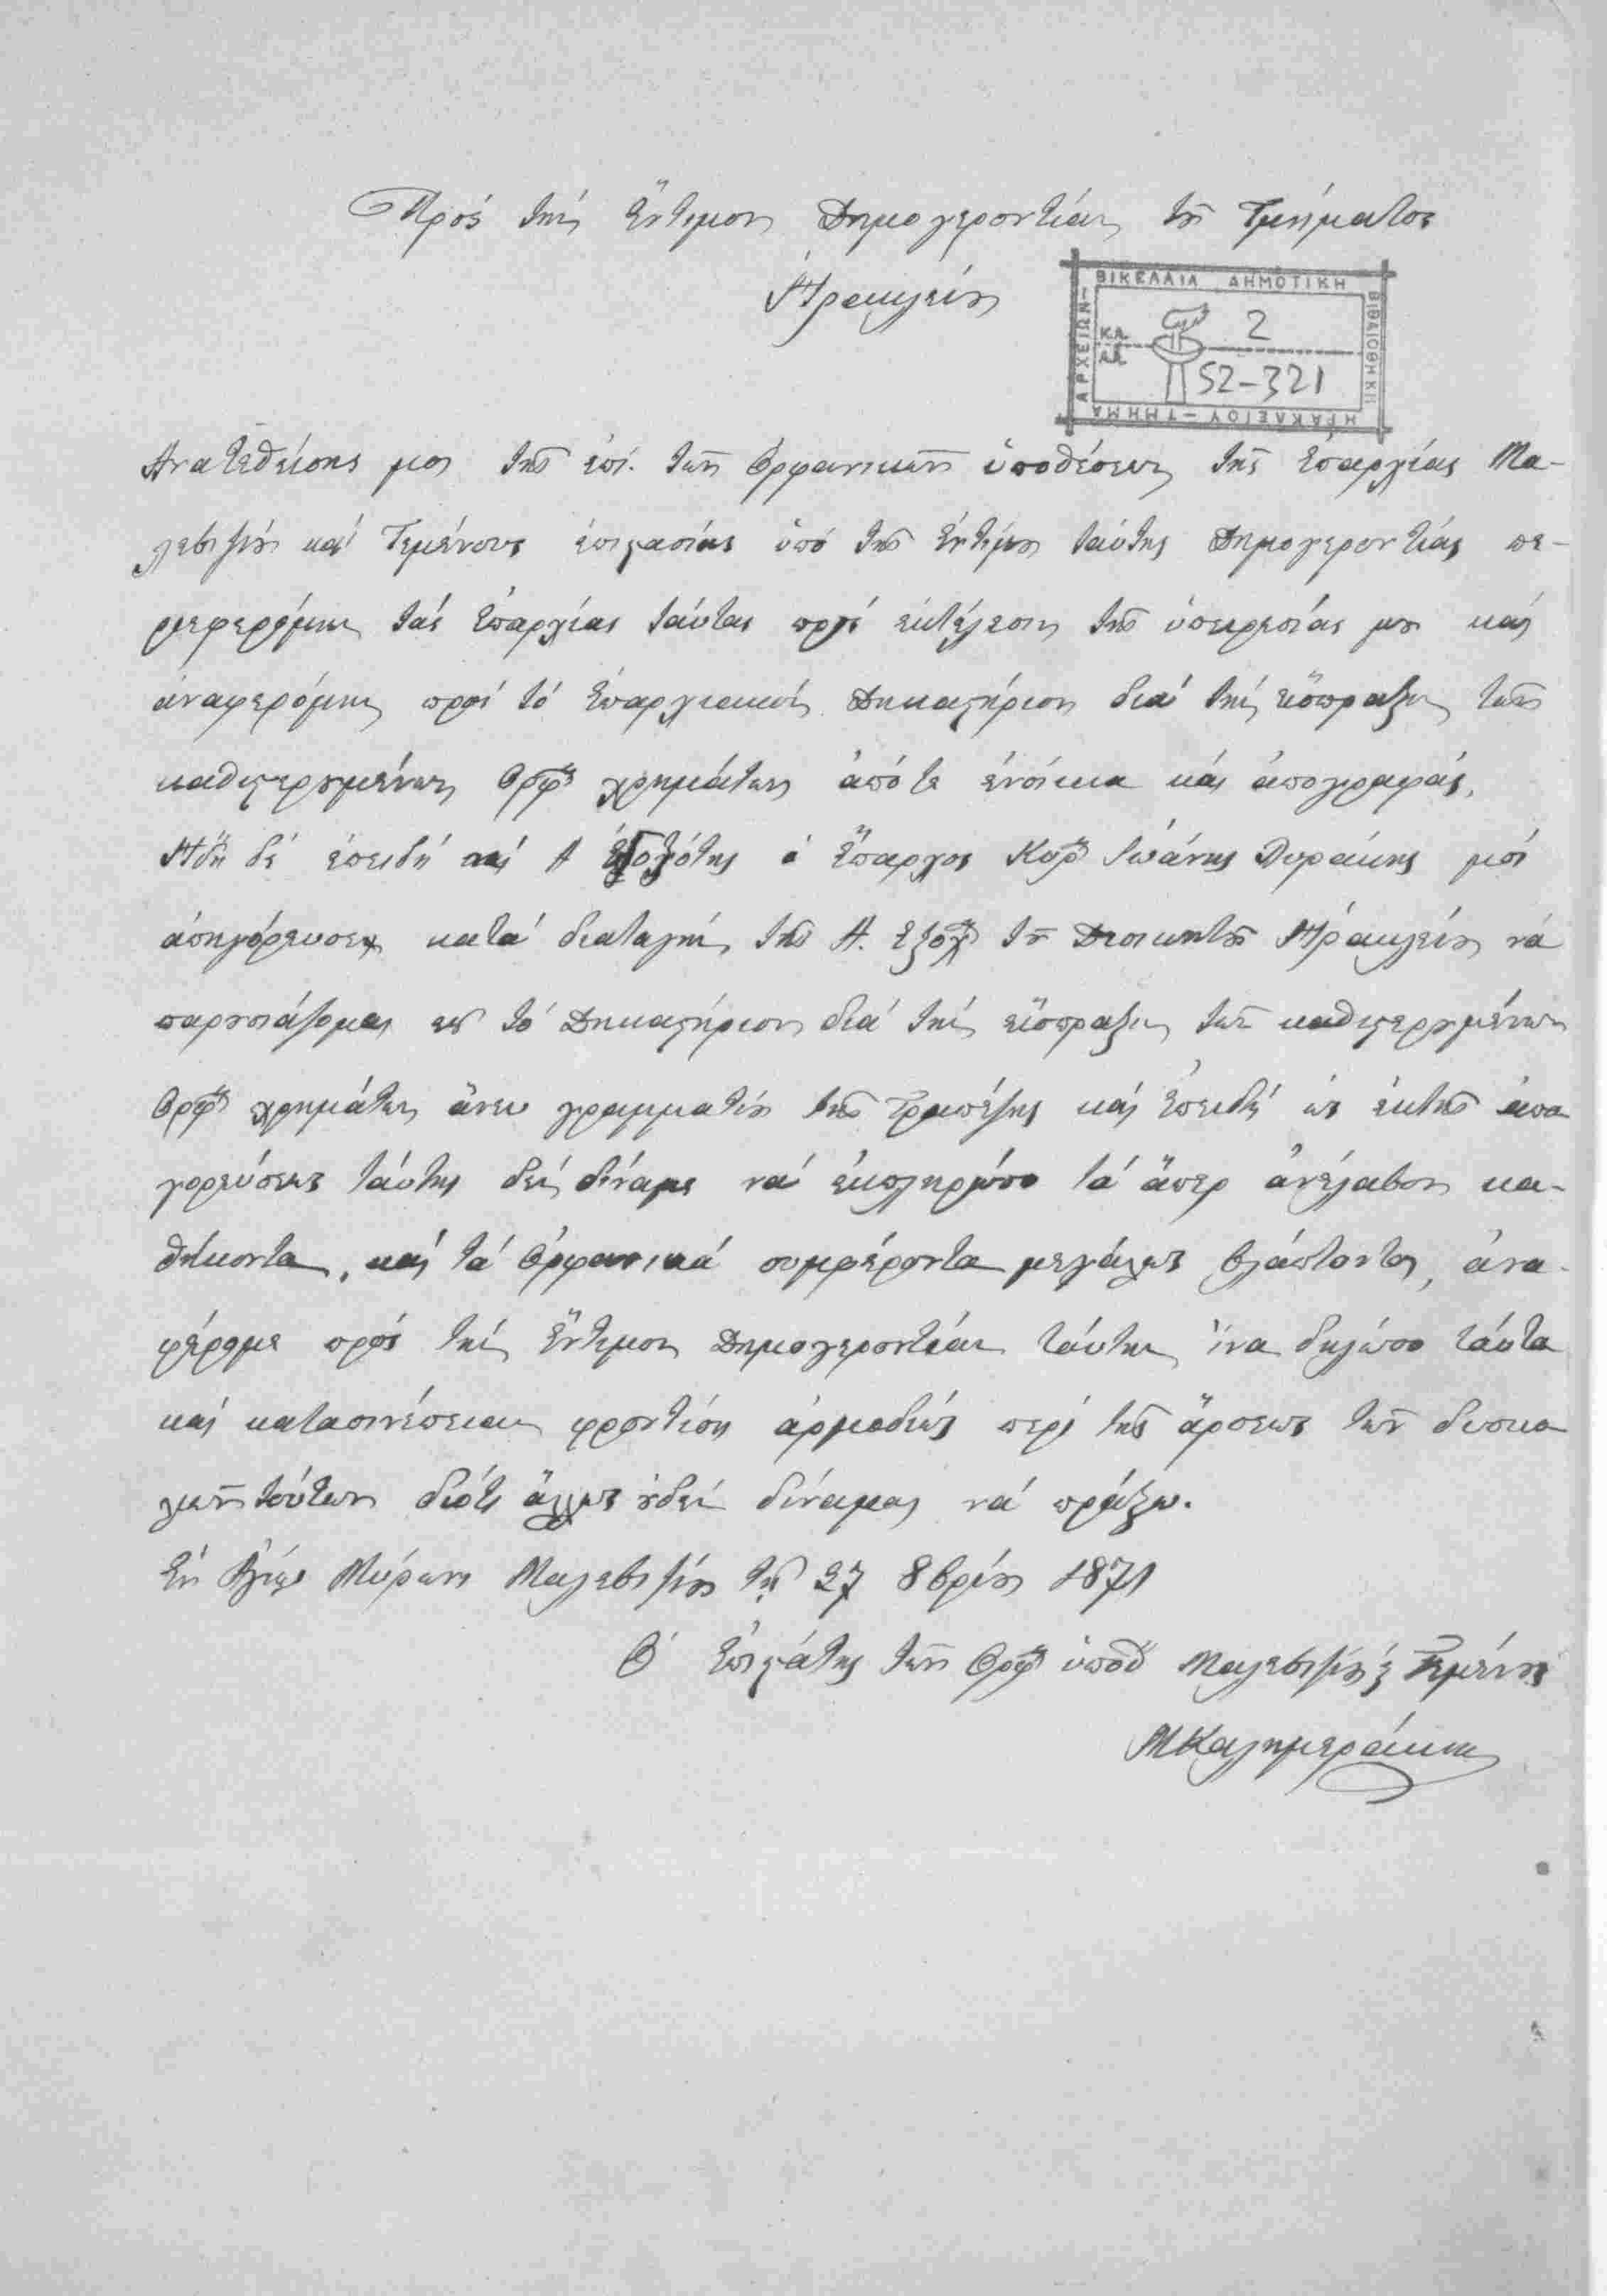 Πρός τήν Ἔντιμον Δημογεροντίαν τοῦ Τμήματος
Ἡρακλείου
ΒΙΚΕΛΑΙΑ ΔΗΜΟΤΙΚΗ
ΒΙΒΛΙΟΘΗΚΗ
ΗΡΑΚΛΕΙΟΥ - ΤΜΗΜΑ
ΑΡΧΕΙΩΝ
2
52-321
Ἀνατεθείσης μοι τῆς ἐπί τῶν Ὀρφανικῶν ὑποθέσεων τῆς Ἐπαρχίας Μα-
λεβιζίου καί Τεμένους ἐπιστασίας ὑπό τῆς Ἐντίμου ταύτης Δημογεροντίας πε-
ριεφερόμην τάς Ἐπαρχίας ταύτας πρός ἐκτέλεσιν τῆς ὑπειρεσίας μου καί
ἀναφερόμην πρός τό Ἐπαρχιακόν Δηκαστήριον διά τήν εἴσπραξιν τῶν
καθυστερουμένων Ὀρφ χρημάτων ἀπό τε ἐνοίκια καί ἀπογραφάς.
Ἤδη δέ ἐπειδή καί Α Ἐξοχότης ὁ Ἔπαρχος Κύρ Ἰωάνης μοί
ἀπηγόρευσεν κατά διαταγήν τῆς Α. Ἐξοχ τοῦ Διοικητοῦ Ἡρακλείου νά
παρουσιάζομαι εἰς τό Δηκαστήριον διά τήν εἴσπραξιν τῶν καθυστερουμένων
Ὀρφ χρημάτων ἄνευ γραμματίου τῆς Τραπέζης καί Ἐπειδή ὡς ἐκτῆς ἀπα
γορεύσεως ταύτης δέν δύναμε νά ἐκπληρώσο τά ἅπερ ἀνέλαβον κα-
θήκοντα, καί τά Ὀρφανικά συμφέροντα μεγάλως βλάπτονται, ἀνα-
φέρομε πρός τήν Ἔντιμον Δημογεροντίαν ταύτην ἵνα δηλώσο ταῦτα
καί κατασυνέπειαν φροντίσῃ ἁρμοδίως περί τῆς ἄρσεως τῶν δυσκο
λιῶν τούτων διότι ἄλλως οὐδέν δύναμαι νά πράξω.
Ἐν Ἁγίῳ Μύρωνι Μαλεβιζίου τῇ 27 8βρίου 1871
Ὁ Ἐπιστάτης τῶν Ὀρφ ὑποθ Μαλεβιζίου ϗ Τεμένους
ΜΚαλημεράκης